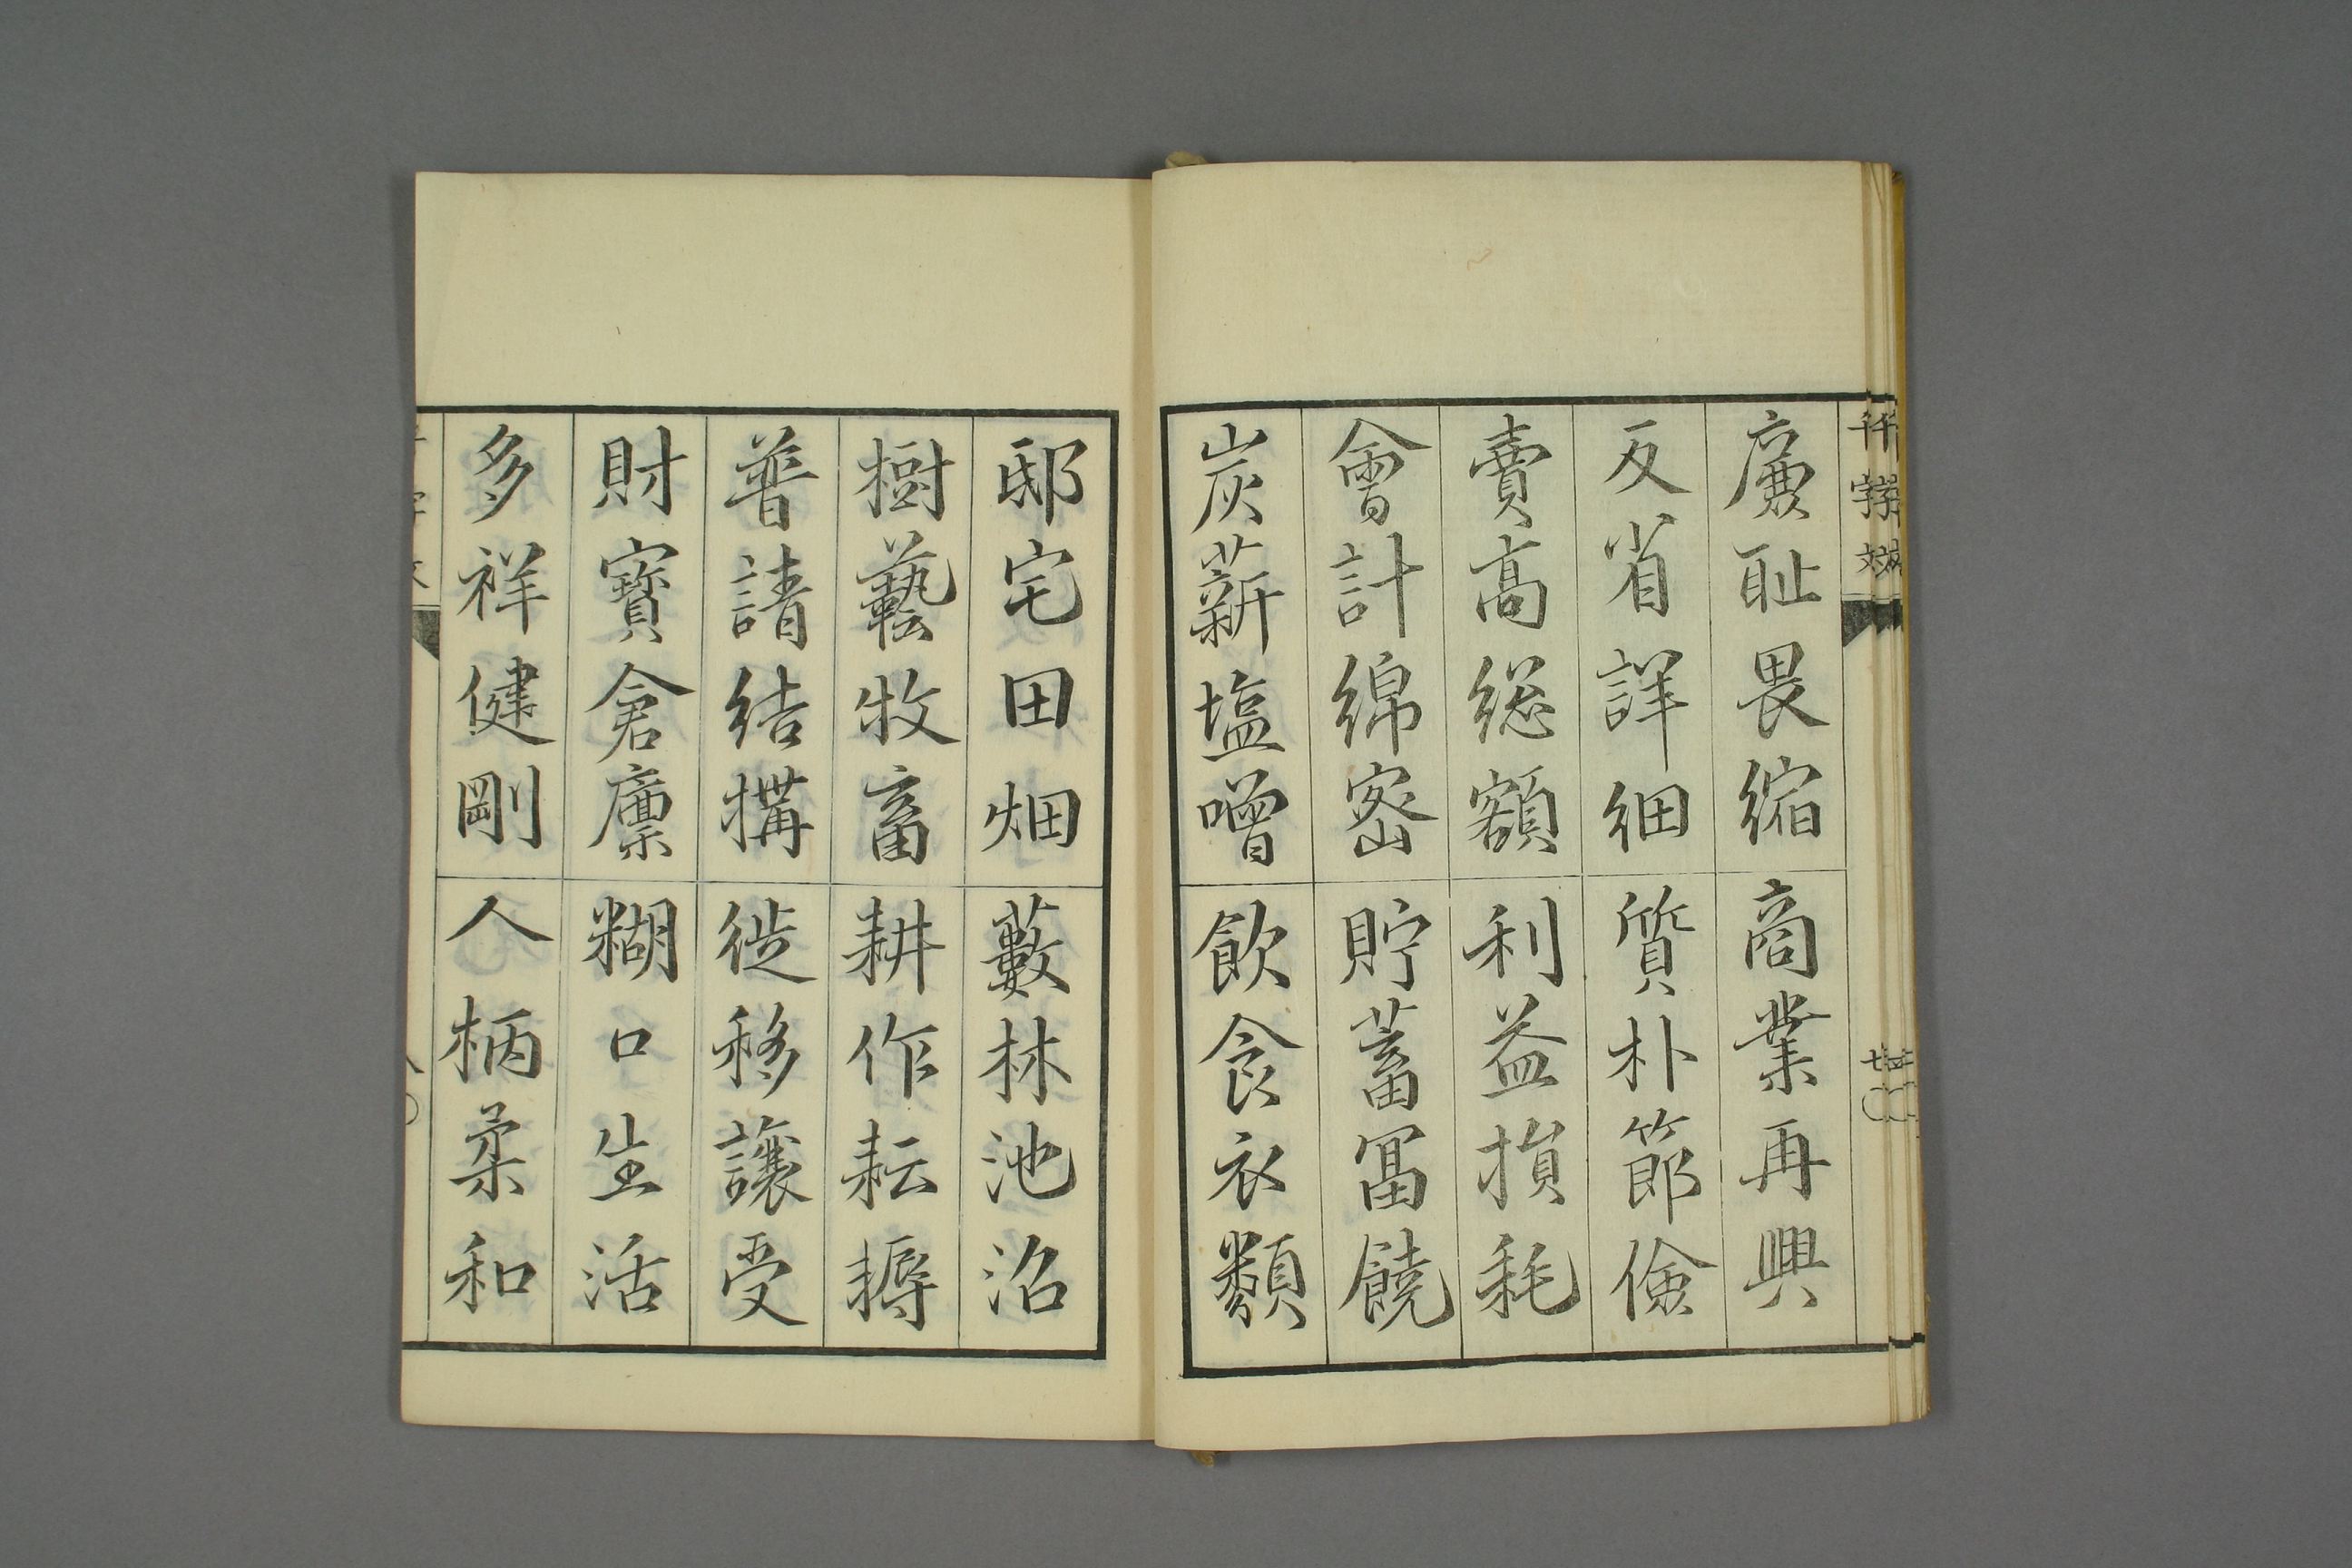 廉耻畏縮商業再興
反省詳細質朴節儉
賣高総額利益損耗
會計綿密貯蓄冨饒
炭薪塩噌飲食衣類
邸宅田畑藪林池沼
樹藝牧畜耕作耘耨
普請結構徙移譲受
財寳倉廩糊口生活
多祥健剛人柄柔和
千字文
七